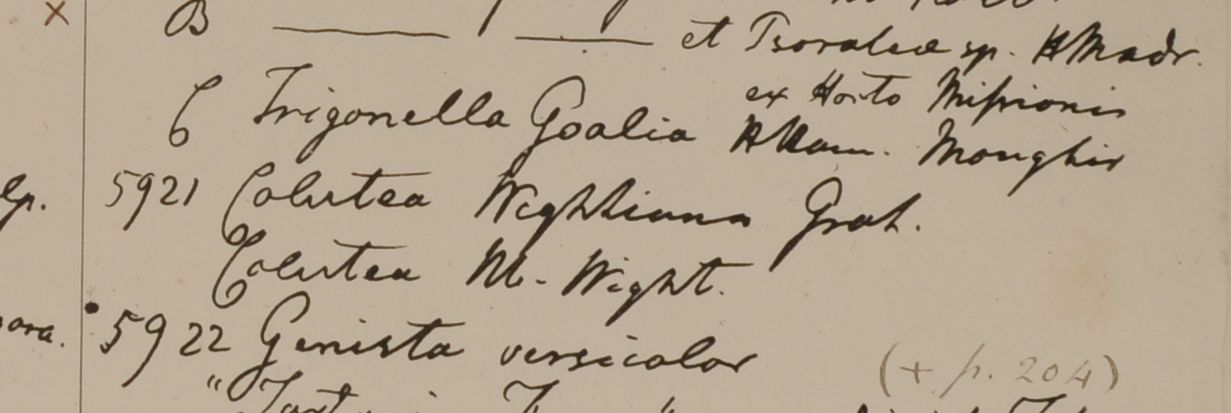 B —— / —— et Psoralea sp. H Madr.
ex Horto Missionis
C Trigonella Goalia H Ham. Monghir
lp. 5921 Colutea Wightiana Grah.
Colutea M. Wight.
ora. 5922 Genista versicolor
(+ p. 204)